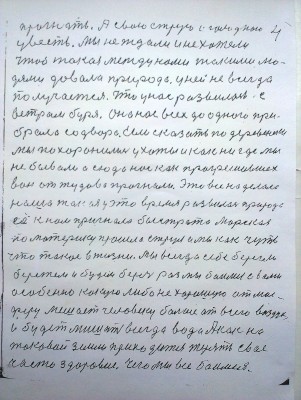 прогнать. А свою струю с городною 4
увесть. Мы не ждали и не хотели
чтоб такая между нами такими лю-
дями давала природа, у ней не всегда
получается. Что у нас развилось - с
ветрам буря. Она нас всех до одного при-
брала со двора. Если сказать по деревням
мы похоронили у хоты и как ни где мы
не бывало а сюда нас как прогрешивших
вон от тудова прогнали. Это все наделала
наша такая у это время развитая природа
её к нам пригнала быстрота Морская
по материку прошла струя и мы как чуть
что такое в жизни. Мы всегда себе берегем
бережем и будем беречь раз мы боимся
особенно какую либо не хорошую атмос-
феру мешает человеку более от всего воздух
и будет мешать всегда вода А как на
таковой земли приходится терять свое
часто здоровие. Чего мы все боимся.